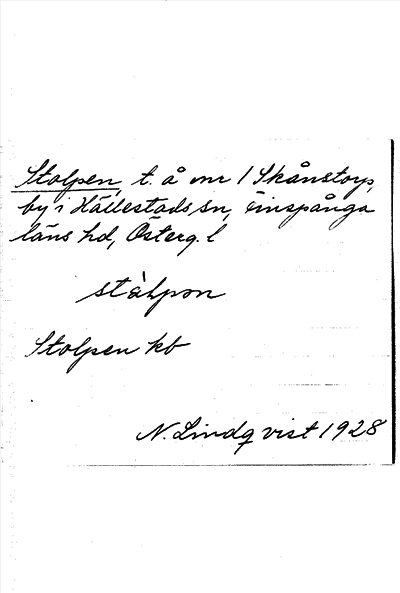 Stolpen, t. å nr 1 Skånstorp,
by i Hällestads sn, Finspånga
läns hd, Österg. l
stålpon
Stolpen kb
N. Lindqvist 1928